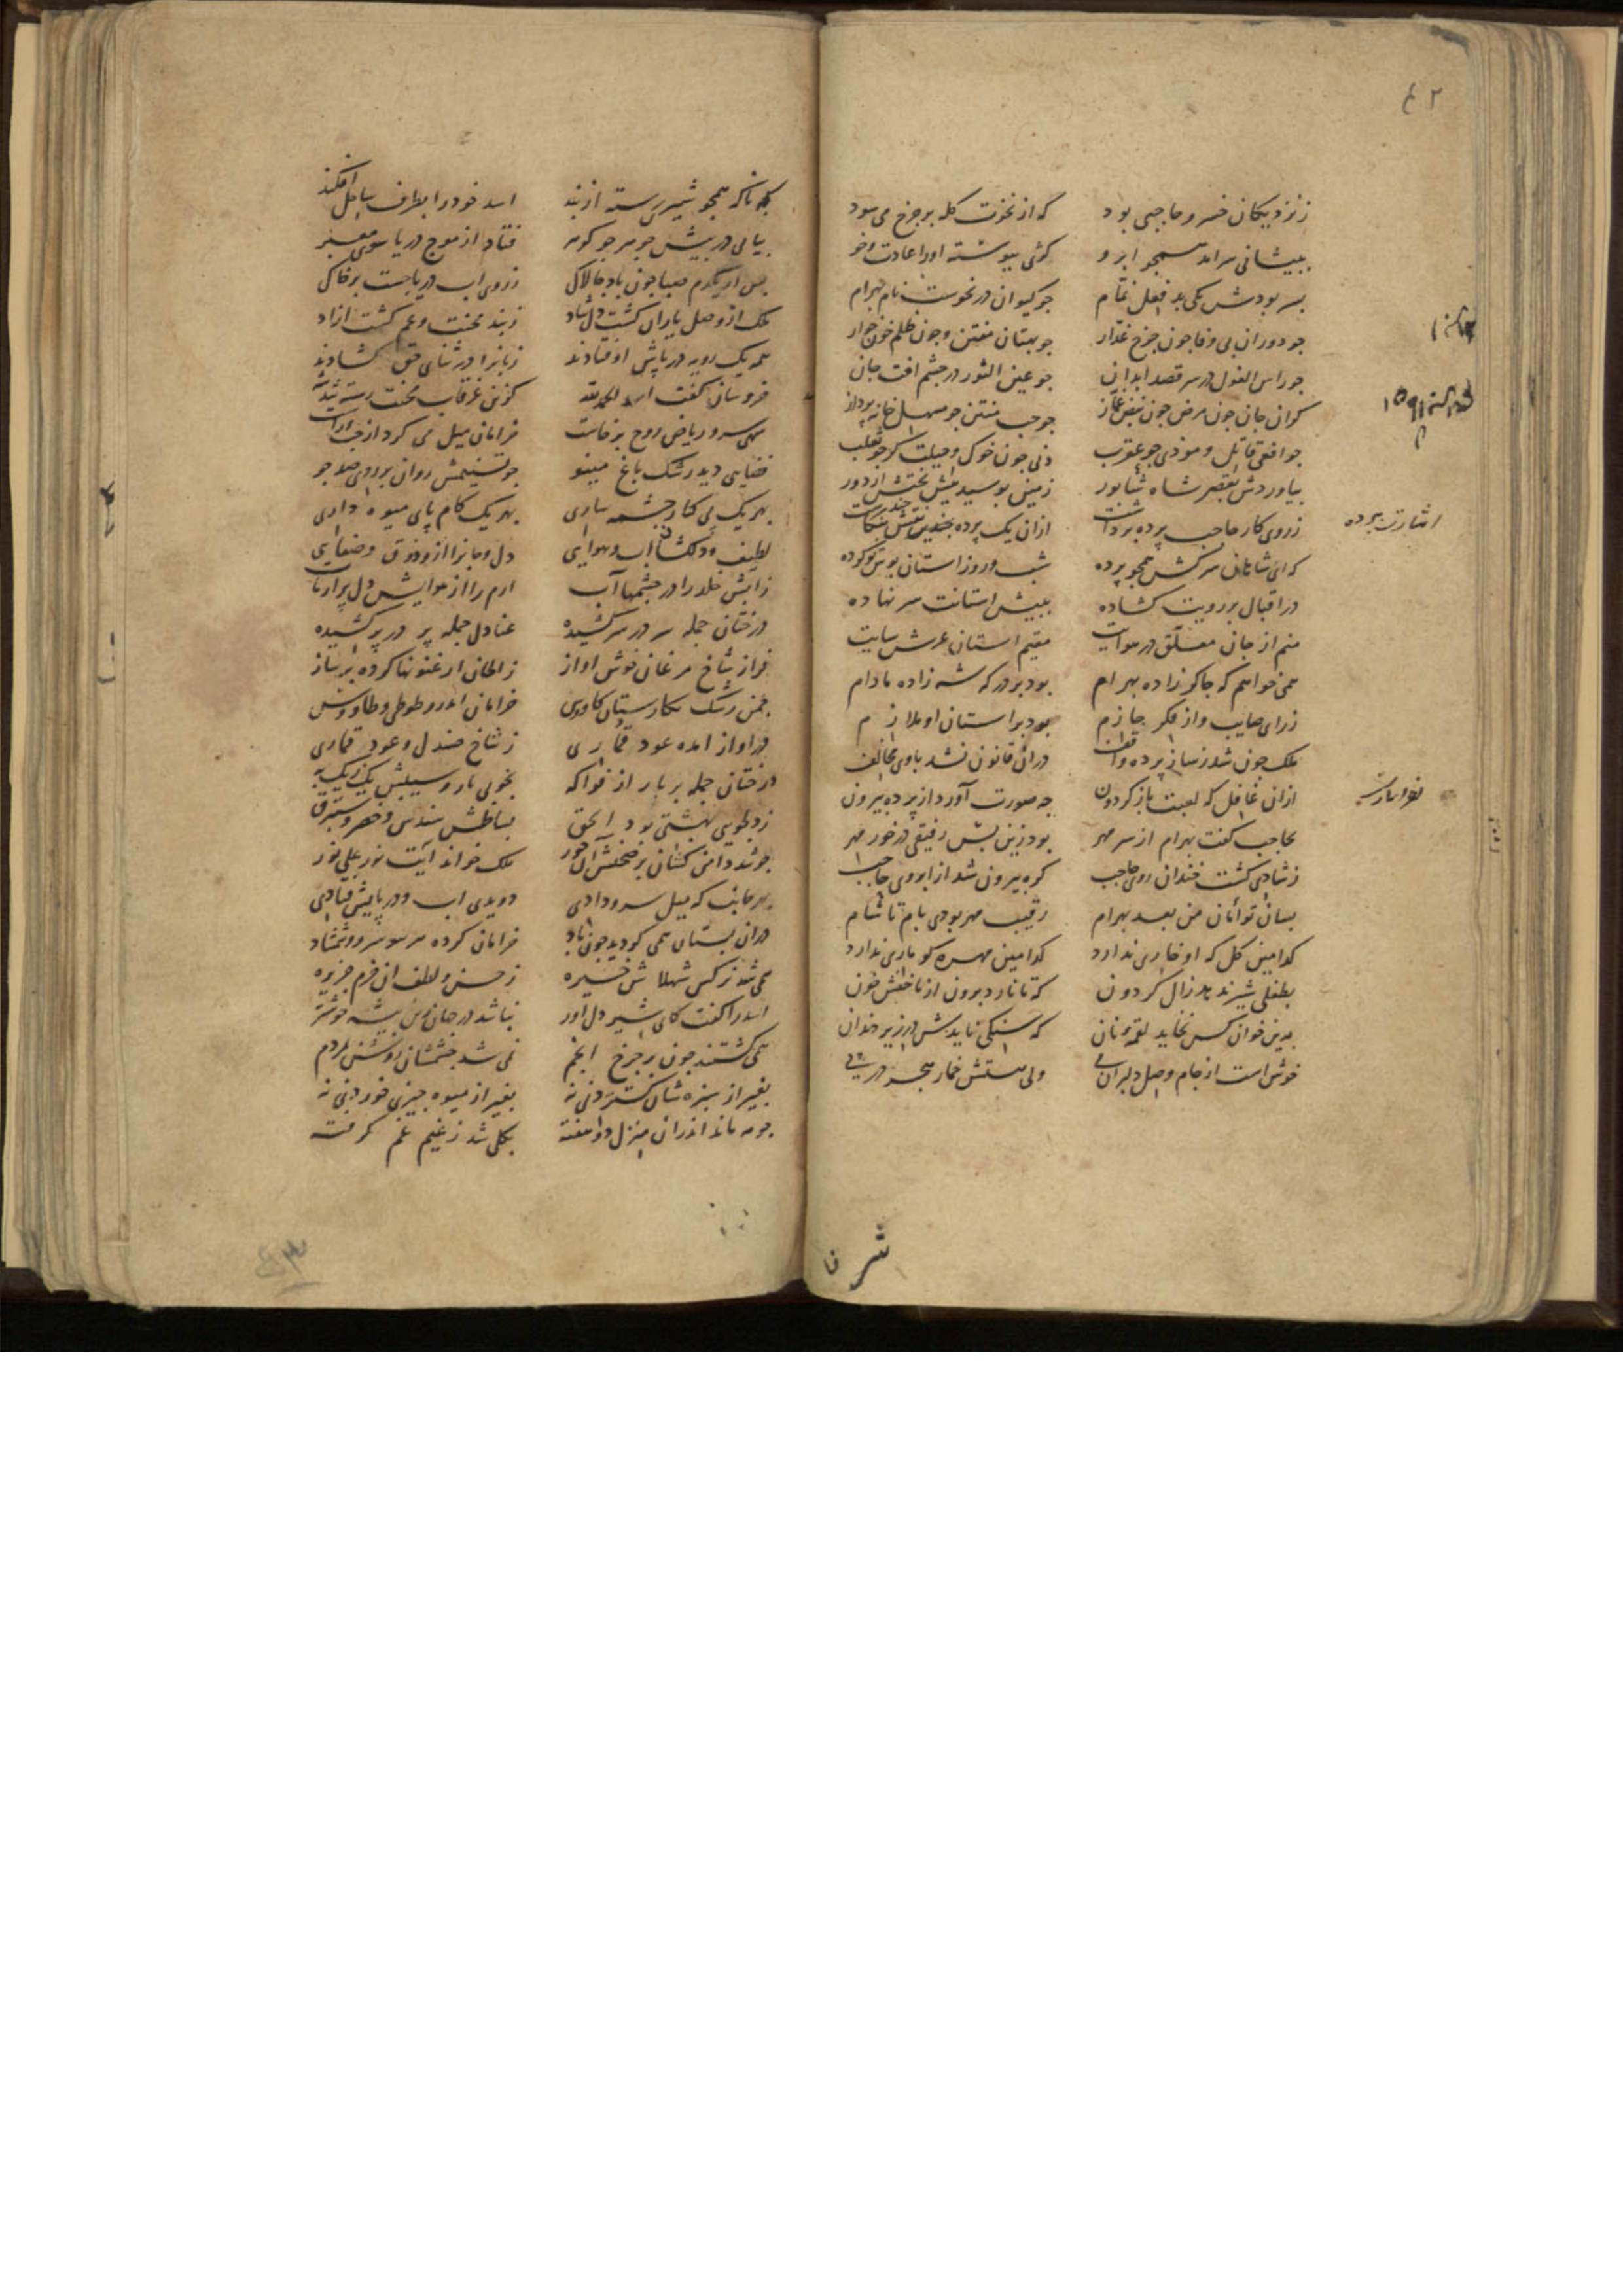 ۴۲
ز نزدیکان خسرو حاجبی بود که از نخوت کله بر چرخ می سود
ببیشانی سرامد همجو ابرو کژی بیوسته اورا عادت و خو
بسر بودش یکی بد فعل نمام جو کیوان در نحوست نام بهرام
جو دوران بی وفا جون جرخ غدار جو بهتان مفتن و جون ظلم خون خوار
جو راس الغول در سر قصد ابدان جو عین الثور در جشم افت جان
کران جان جون مرض جون نبض غماز جو حب منتن جو مسهل خانه برداز
جو افعی قاتل و موذی جو عقرب دنی جون خوک و حیلت کر جو ثعلب
بیاوردش بقصر شاه شابور زمین بوسید بیش تختش از دور
ز روی کار حاجب برده برداشت ازان یک برده جندین نقش بنکاشت
که ای شاهان سرکش همجو برده شب و روز استان بوس تو کرده
در اقبال بر رویت کشاده ببیش استانت سر نهاده
منم از جان معلق در هوایت مقیم استان عرش سایت
همی خواهم که جاکر زاده بهرام بود بر درکه شه زاده مادام
ز رای صایب و از فکر جازم بود بر استان او ملازم
ملک جون شد ز ساز برده واقف دران قانون نشد باوی مخالف
ازان غافل که لعبت باز کردون جه صورت آورد از برده بیرون
بحاجب کفت بهرام از سر مهر بود زین بس رفیقی در خور مهر
ز شادی کشت خندان روی حاجب کره بیرون شد از ابروی حاجب
بسان توأمان من بعد بهرام رقیب مهر بودی بام تا شام
کدامین کل که او خاری ندارد کدامین مهره کو ماری ندارد
بطفلی شیر ندهد زال کردون که تا نارد برون از ناخنش خون
بدین خوان کس نخاید لقمه نان که سنکی نایدش در زیر دندان
خوش است از جام وصل دلبران می ولی هستش خمار هجر در بی
اشارت برده
شرن
بکه ناکه همجو شیر رسته از بند اسد خود را بطرف ساحل افکند
بیامی در بیش جوهر جو کوهر فتاد از موج دریا سوی معبر
بس از یکدم صبا جون باد جالاک ز روی اب دریا جست بر خاک
ملک از وصل یاران کشت دل شاد ز بند محنت و غم کشت ازاد
همه یک رویه در پایش اوفتادند زبانرا در ثنای حق کشادند
خروسان کفت اسد لحمد لله کزین غرقاب محنت رسته شد
سهی سرو ریاض روح برخاست خرامان میل می کرد از جب و راست
فضایی دید رشک باغ مینو جو تسنیمش روان بر روی صد جو
بهر یک پی کنار جشمه ساری بهر یک کام پای میوه داری
لطیف و دلکشا اب و هوایی دل و جانرا ازو ذوق و صفایی
ز آبش خلد را در جشمها آب ارم را از هوایش دل بر ارتاب
درختان جمله سر در سر کشیده عنادل جمله پر در پر کشیده
فراز شاخ مرغان خوش اواز ز الحان ارغنونها کرده بر ساز
جمن رشک نکارستان کاوس خرامان اندرو طوطی و طاووس
در اواز امده عود قماری ز شاخ صندل و عود قماری
درختان جمله بر بار از فواکه بخوبی نار و سیبش یک ز یک به
ز طوبی بهشتی بود الحق بساطش سندس و خضر و ستبرق
جو شد دامن کشان بر صحنش آن حور ملک خواند آیت نور علی نور
بهر جانب که میل سرو دادی دویدی اب و در پایش فتادی
دران بستان همی کردید جون باد خرامان کرده هر سو سرو و شمشاد
همی شد نرکس شهلاش خیره ز حسن و لطف ان خرم جزیره
اسد را کفت کای شیر دل اور نباشد در جهان زین بیشه خوشتر
همی کشتند جون بر جرخ انجم نمی شد جشمشان روشن بمردم
بغیر از سبزه شان کستردنی نه بغیر از میوه جیزی خوردنی نه
جو مه ماند اندران منزل دو هفته بکلی شد ز غیم غم کرفته
۴۳